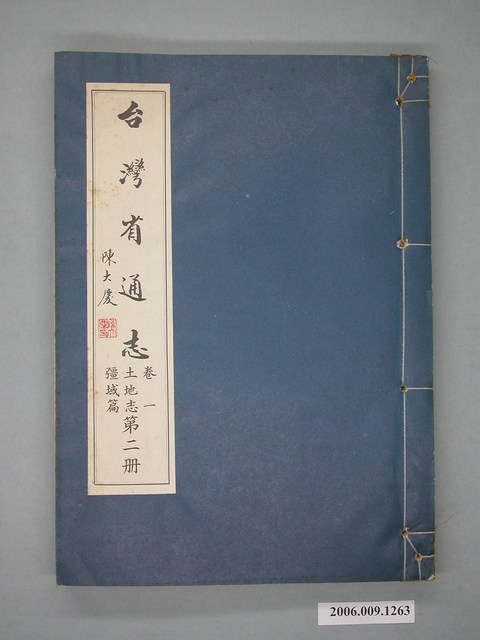 台灣省通志
卷一
土地志第二册
疆域篇
陳大慶
2006.009.1263